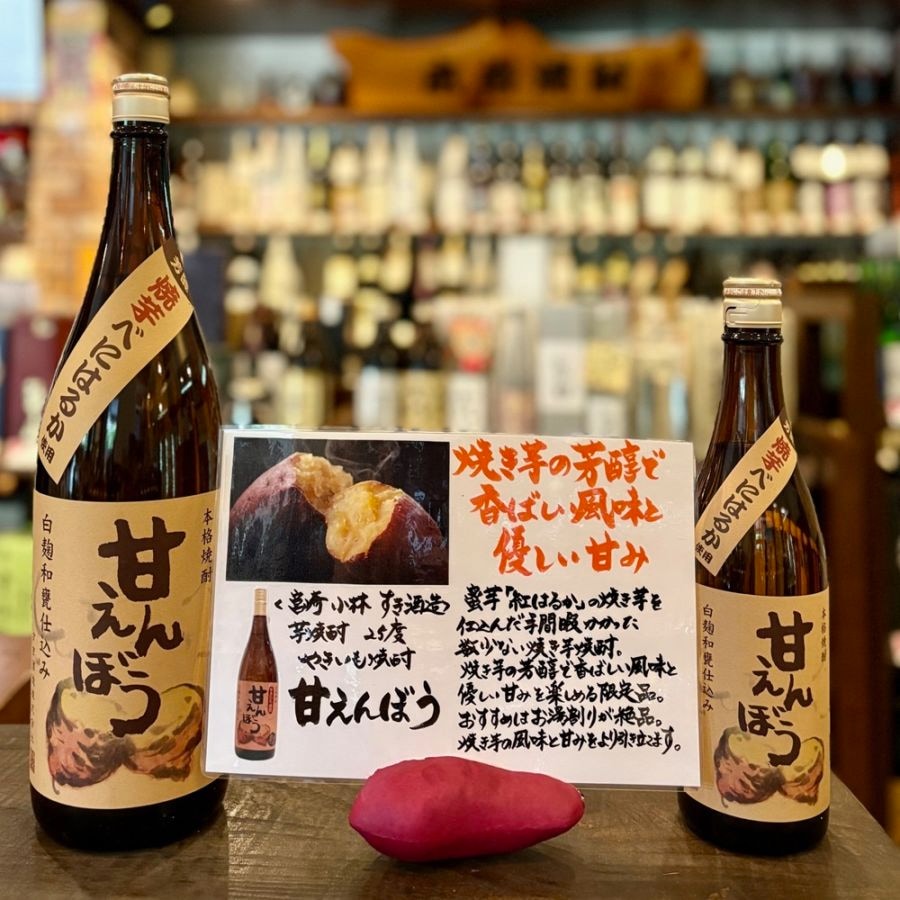 焼芋べにはるか使用
本格焼酎
甘えんぼう
白麹和甕仕込み
焼き芋の芳醇で
香ばしい風味と
優しい甘み
宮崎 小林 すき酒造
芋焼酎 25度
やきいも焼酎
甘えんぼう
甘えんぼう
蜜芋「紅はるか」の焼き芋を
仕込んだ手間暇かかった
数少ない焼き芋焼酎。
焼き芋の芳醇で香ばしい風味と
優しい甘みを楽しめる限定品。
おすすめはお湯割りが絶品。
焼き芋の風味と甘みをより引き立てます。
焼芋べにはるか使用
本格焼酎
甘えんぼう
白麹和甕仕込み